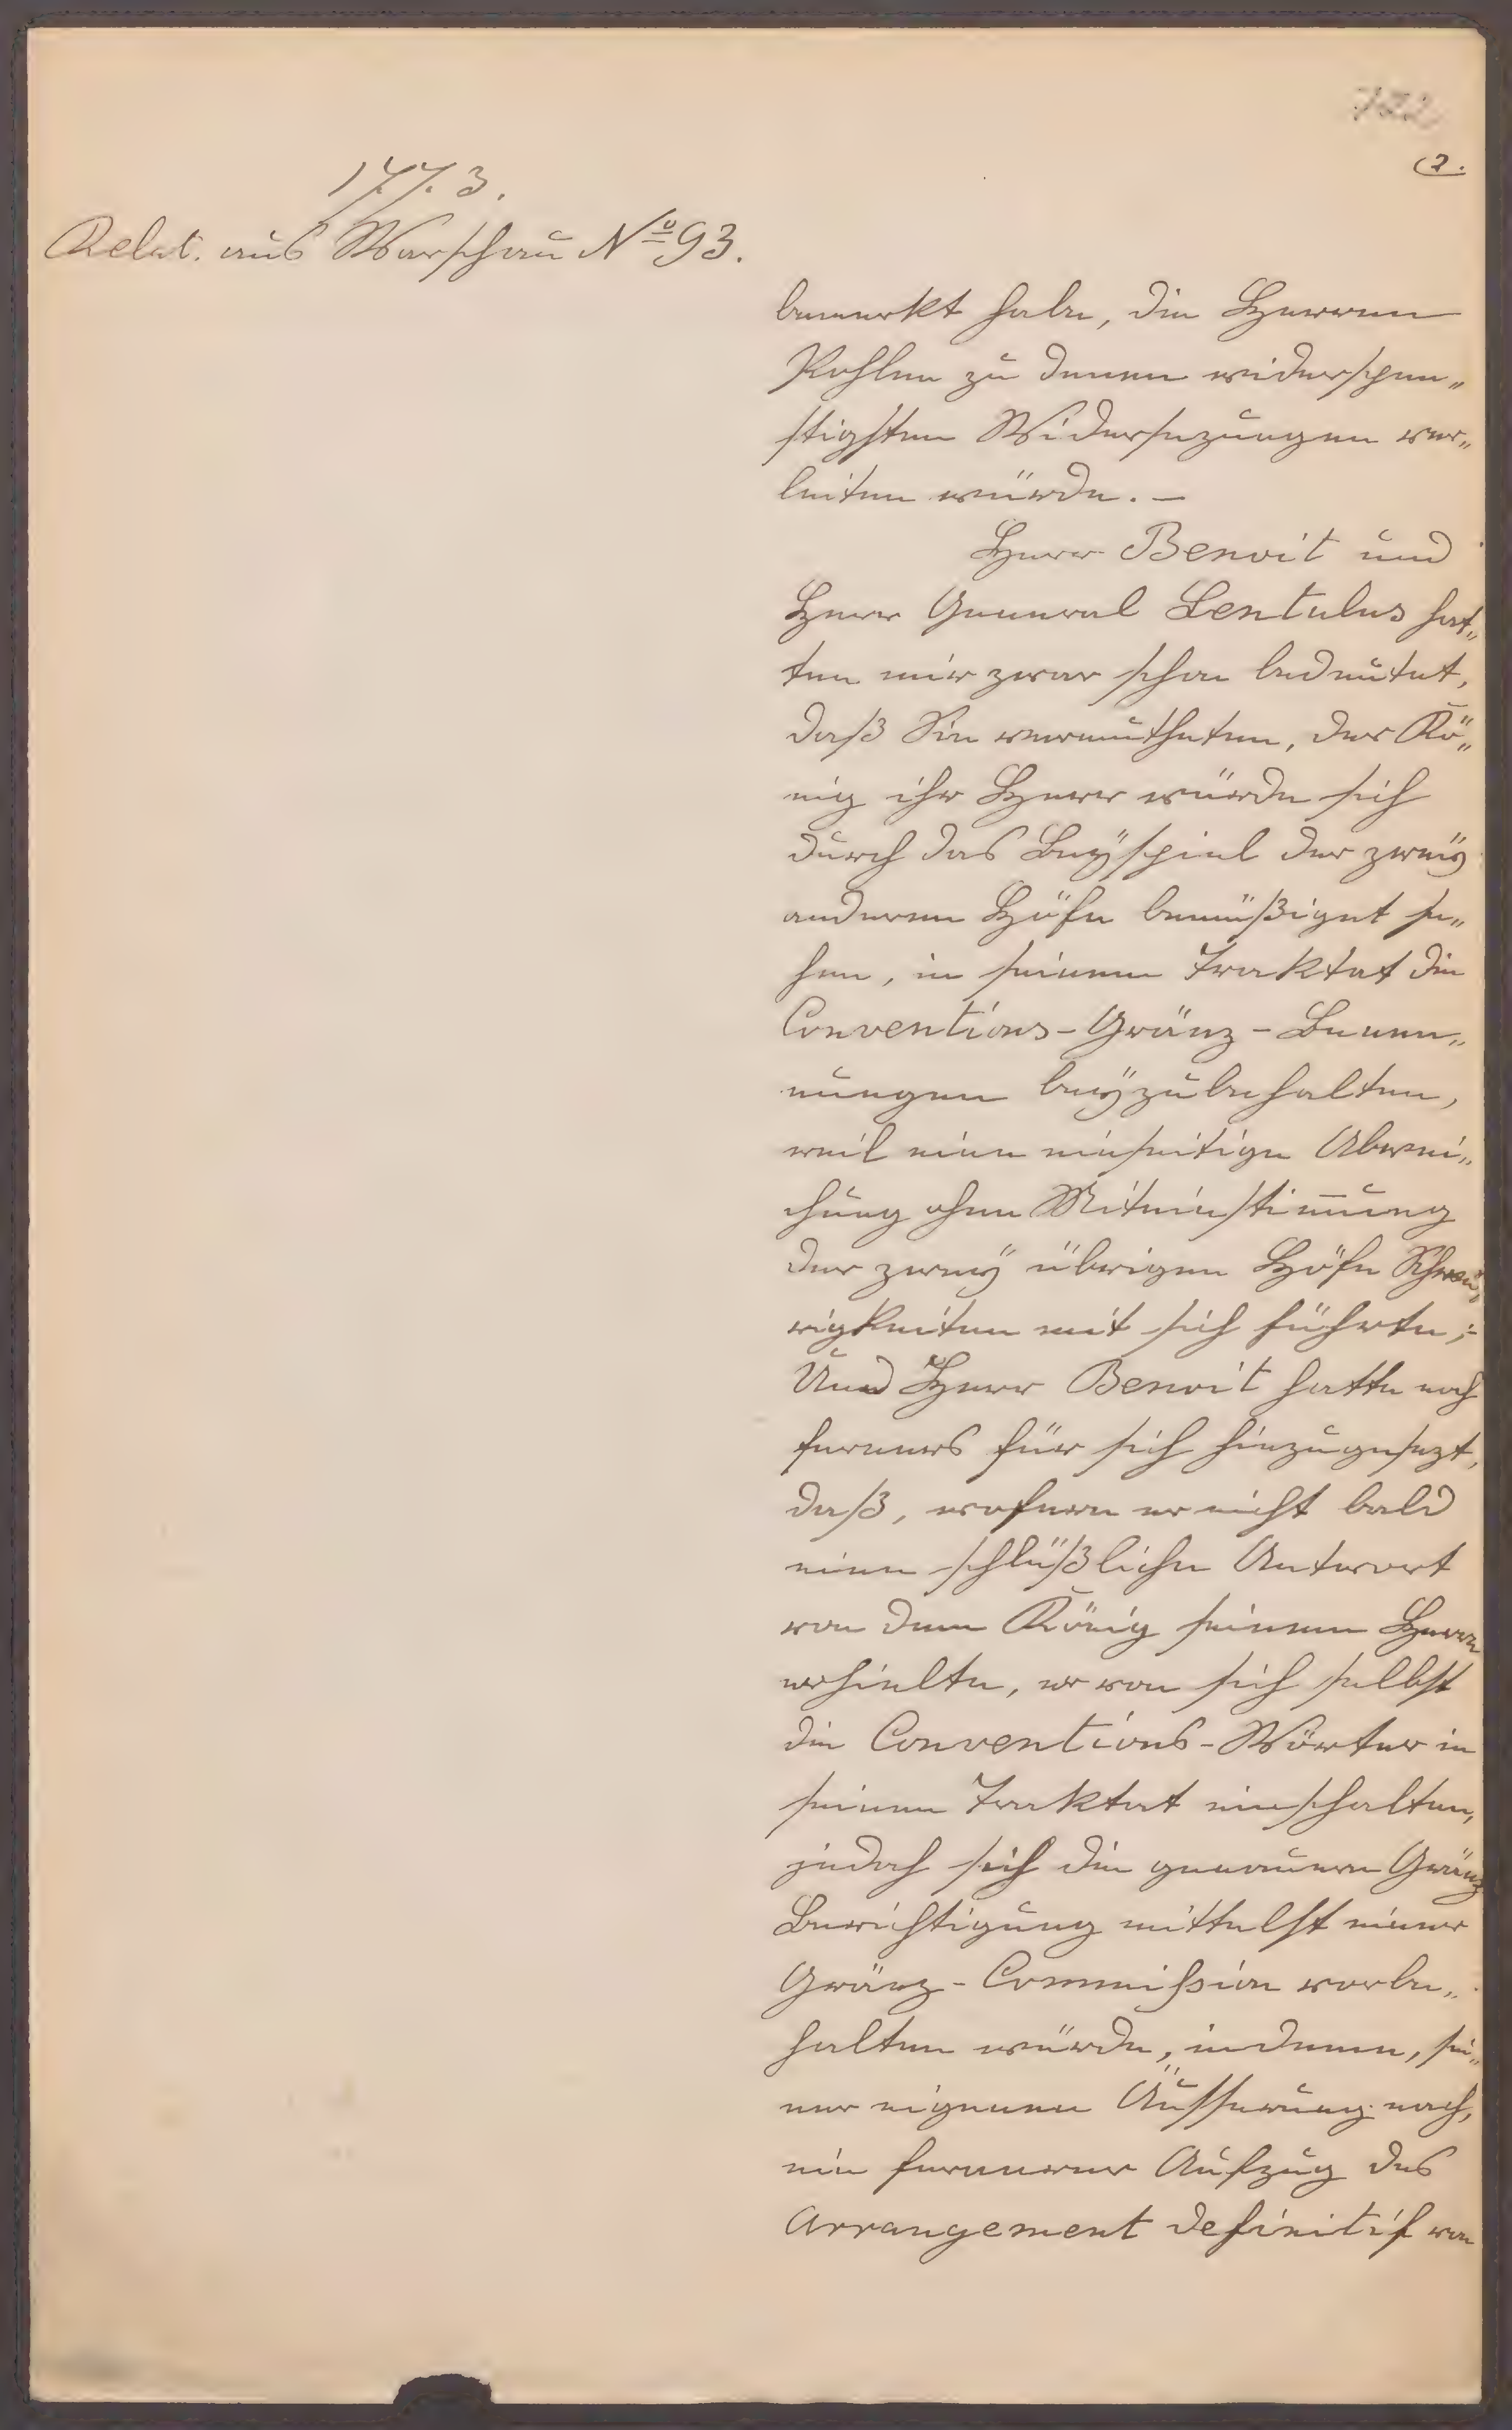 2.
1773.
Relat. aus Warschau No 93.
bemerkt habe, die Herren
Pohlen zu denen widerspen„
stigsten Widersezungen ver„
leiten würde. —
Herr Benoit und
Herr General Lentulus hat„
ten mir zwar schon bedeutet,
daß Sie vermutheten, der Kö„
nig ihr Herr würde sich
durch das Beÿspiel der zweÿ
anderen Höfe bemüßiget se„
hen, in seinem Traktat die
Conventions-Gränz-Benen„
nungen beÿzubehalten,
weil eine einseitige Abwei„
chung ohne Miteinstim̄ung
der zweÿ übrigen Höfe Schwie„
rigkeiten mit sich führte;-
Und Herr Benoit hatte noch
ferners für sich hinzugesezt,
daß, woferne er nicht bald
eine schlüßliche Antwort
von dem König seinem Herrn
erhielte, er von sich selbst
die Conventions-Wörter in
seinem Traktat einschalten,
jedoch sich die genauere Gränz
Berichtigung mittelst einer
Gränz-Commißion vorbe„
halten würde, indeme, sei„
ner eigenen Äusserung nach,
ein fernerer Aufzug des
Arrangement definitif von